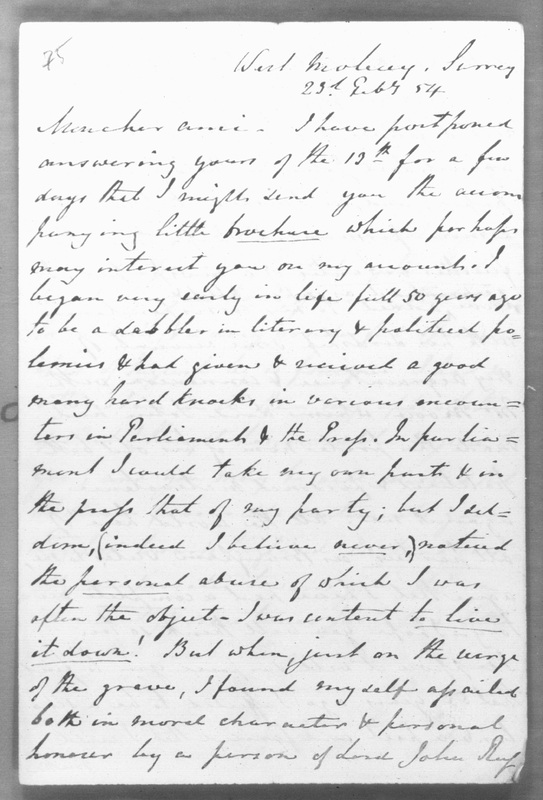 West Molesey. Surrey
23d Feby 54
Mon cher ami - I have postponed
answering yours of the 13th for a few
days that I might send you the accom
panying little brochure which perhaps
may interest you on my account. I
began very early in life full 50 years ago
to be a dabbler in literary & political po=
lemics & had given & received a good
many hard knocks in various encoun=
ters in Parliament & the Press. In parlia=
ment I could take my own part & in
the press that of my party; but I sel=
dom, (indeed I believe never,) noticed
the personal abuse of which I was
often the object - I was content to live
it down! But when, just on the verge
of the grave, I found myself assailed
both in moral character & personal
honour by a person of Lord John Russ